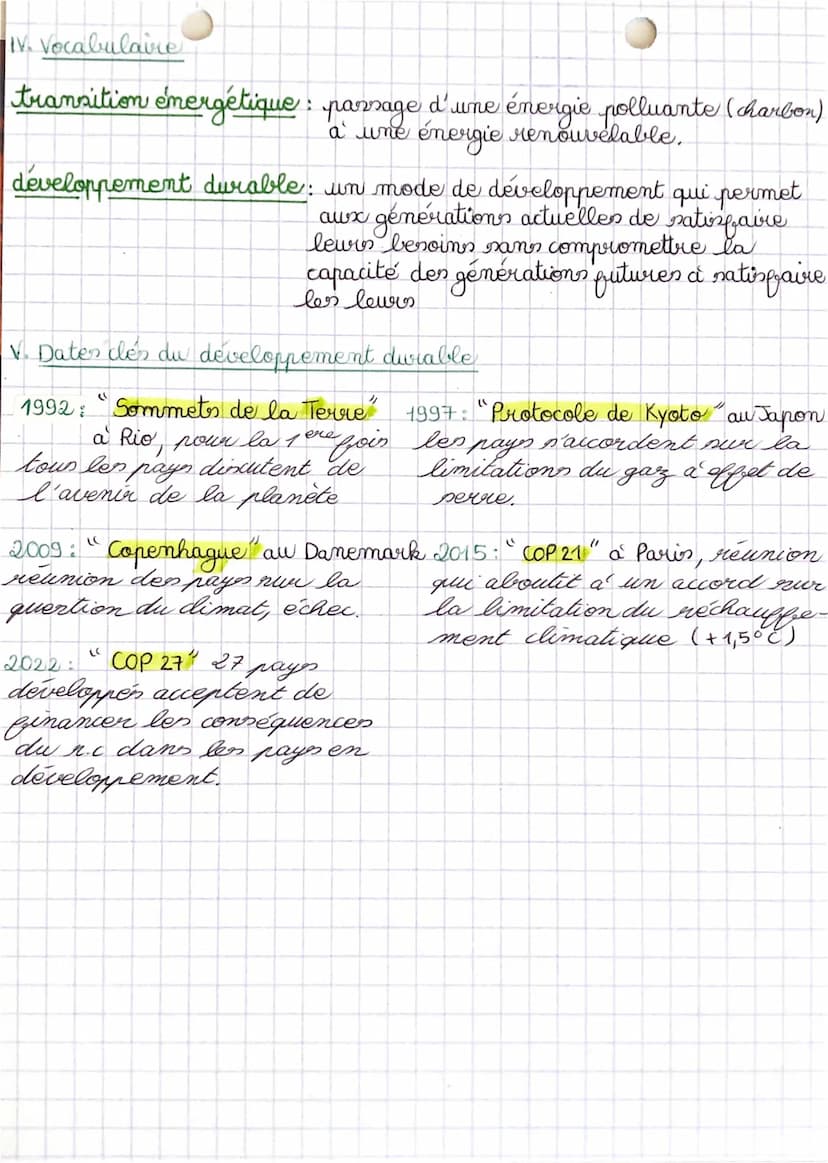 IV. Vocabulaire
transition énergétique : passage d'une énergie polluante (charbon)
à une énergie renouvelable.
développement durable : un mode de développement qui permet
aux générations actuelles de satisfaire
leurs besoins sans compromettre la
capacité des générations futures à satisfaire
les leurs
V. Dates clés du développement durable
1992 : "Sommets de la Terre"
à Rio, pour la 1ere fois
tous les pays discutent de
l'avenir de la planète
1997 : "Protocole de Kyoto" au Japon
les pays s'accordent sur la
limitations du gaz à effet de
serre.
2009 : "Copenhague" au Danemark
réunion des pays sur la
question du climat, échec.
2015 : "COP 21" à Paris, réunion
qui aboutit à un accord sur
la limitation du réchauffe-
ment climatique (+1,5°C)
2022 : "COP 27" 27 pays
développés acceptent de
financer les conséquences
du r.c dans les pays en
développement.